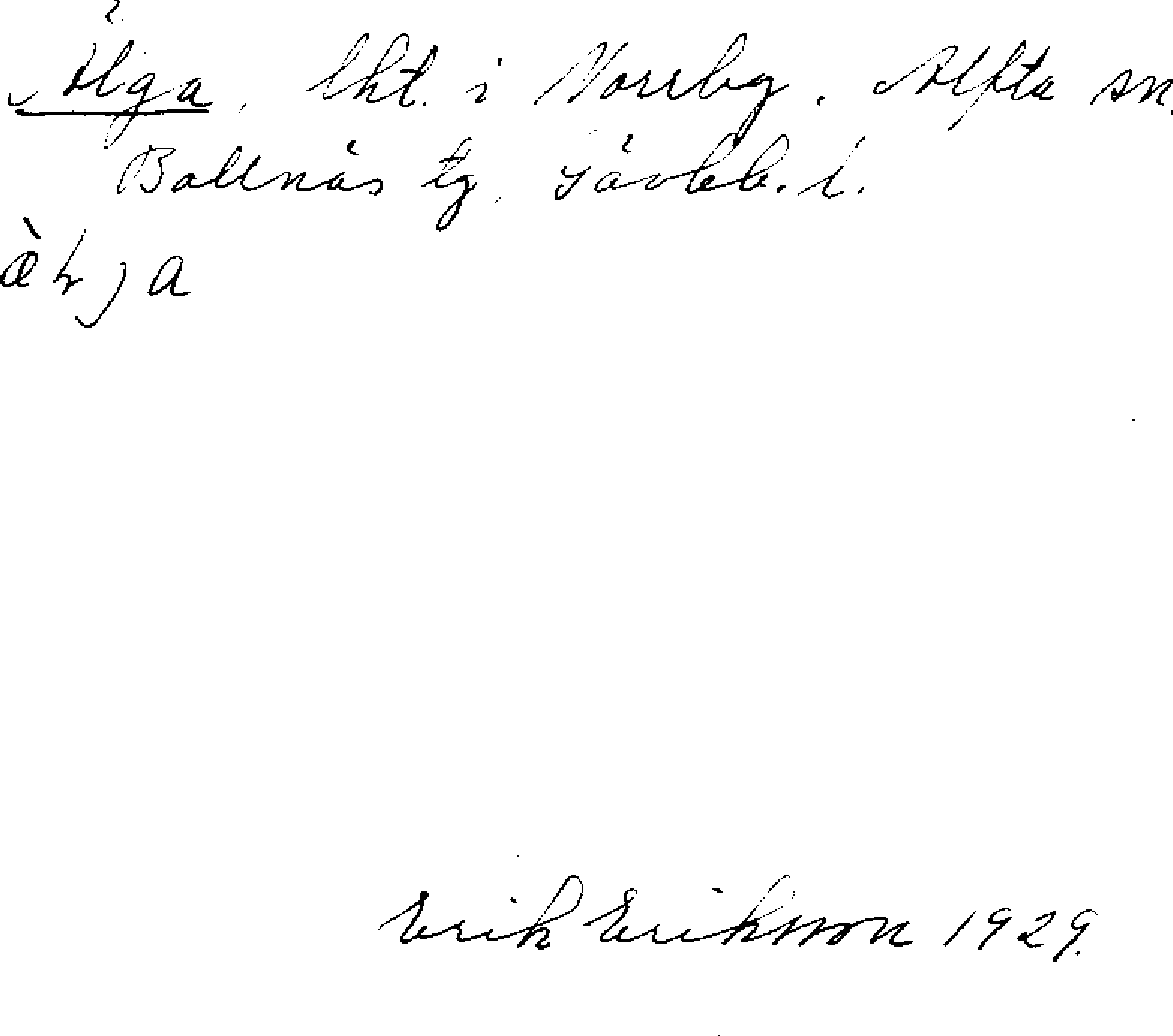 Älga, lht. i Norrbg. Alfta sn.
Bollnäs tg. Gävleb. l.
Erik Eriksson 1929.